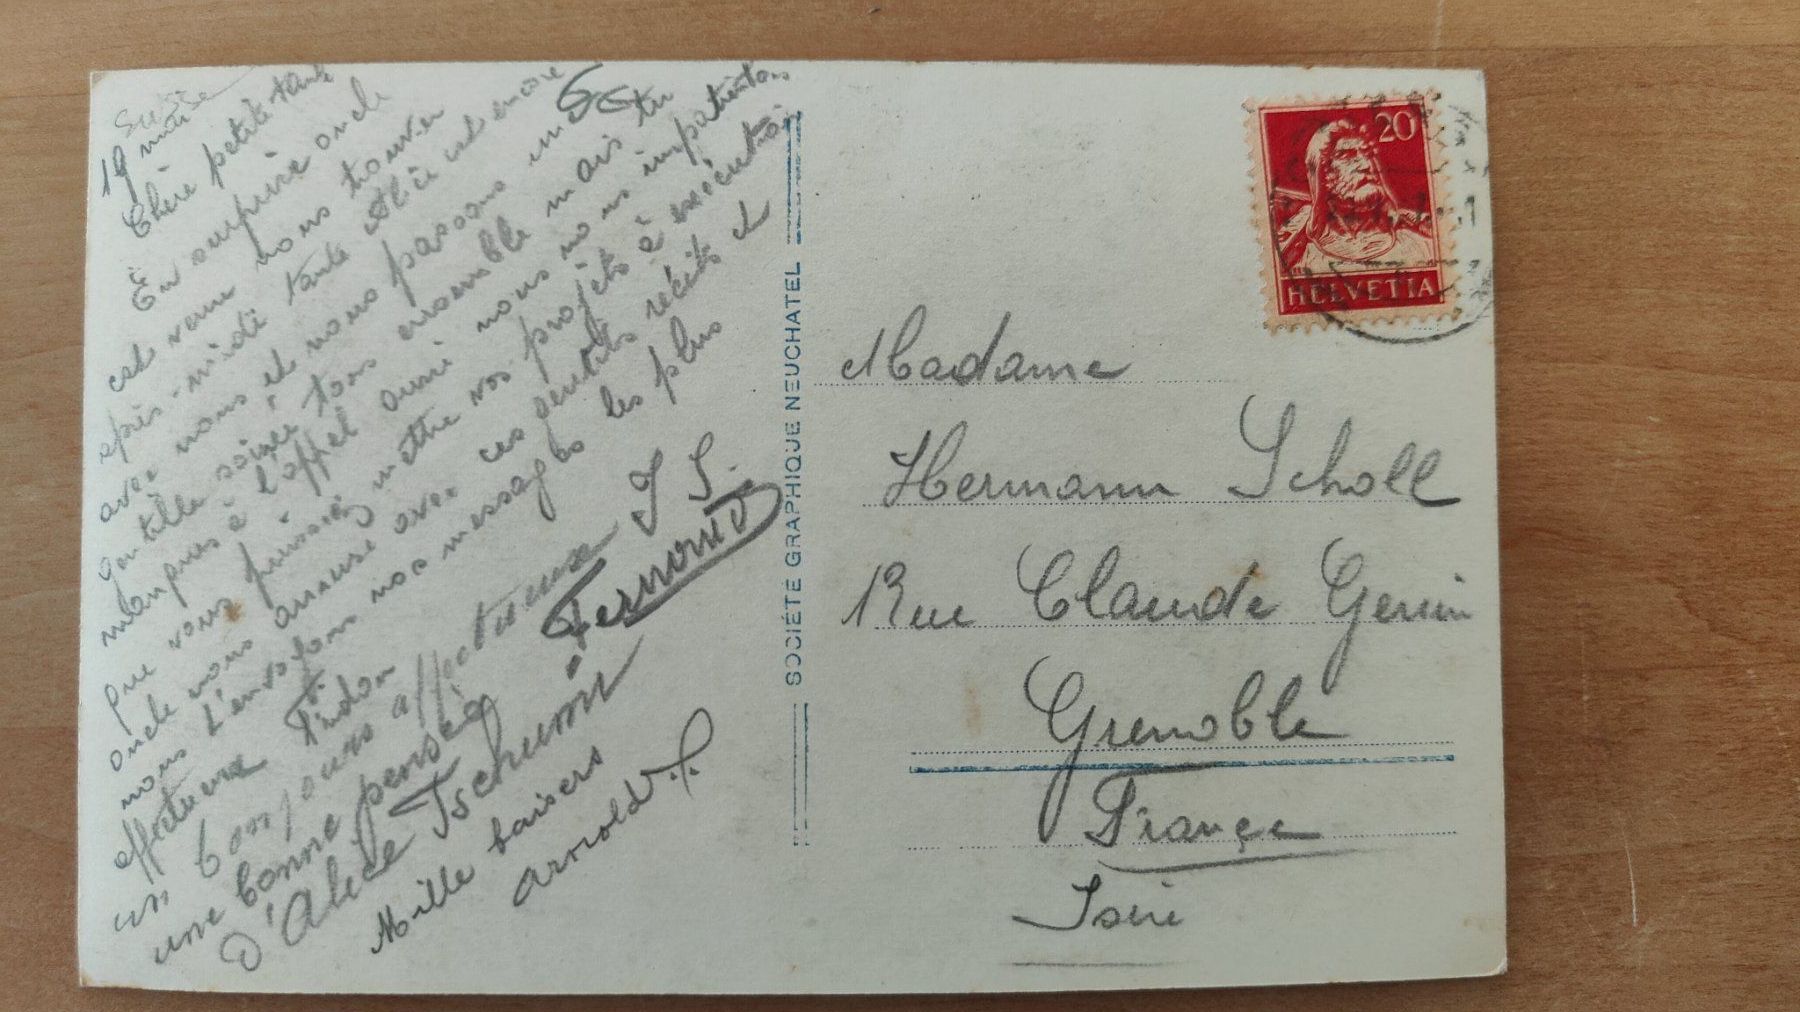 Suisse
19 mai
Chère petite tante
En surprise oncle
est venu nous trouver
après-midi tante Alice est encore
avec nous et nous passons une
gentille soirée tous ensemble mais tu
manques à l'appel aussi nous nous impatientons
que vous puissiez mettre vos projets à exécution
oncle nous amuse avec ces gentils récits et
nous t'envoyons nos messages les plus
affectueux
un bonjour affectueux J S.
Fernand
une bonne pensée
d'Alice Tschumi
Mille baisers
Arnold
SOCIÉTÉ GRAPHIQUE NEUCHATEL
20
HELVETIA
Madame
Hermann Scholl
1 Rue Claude Genin
Grenoble
France
Isère